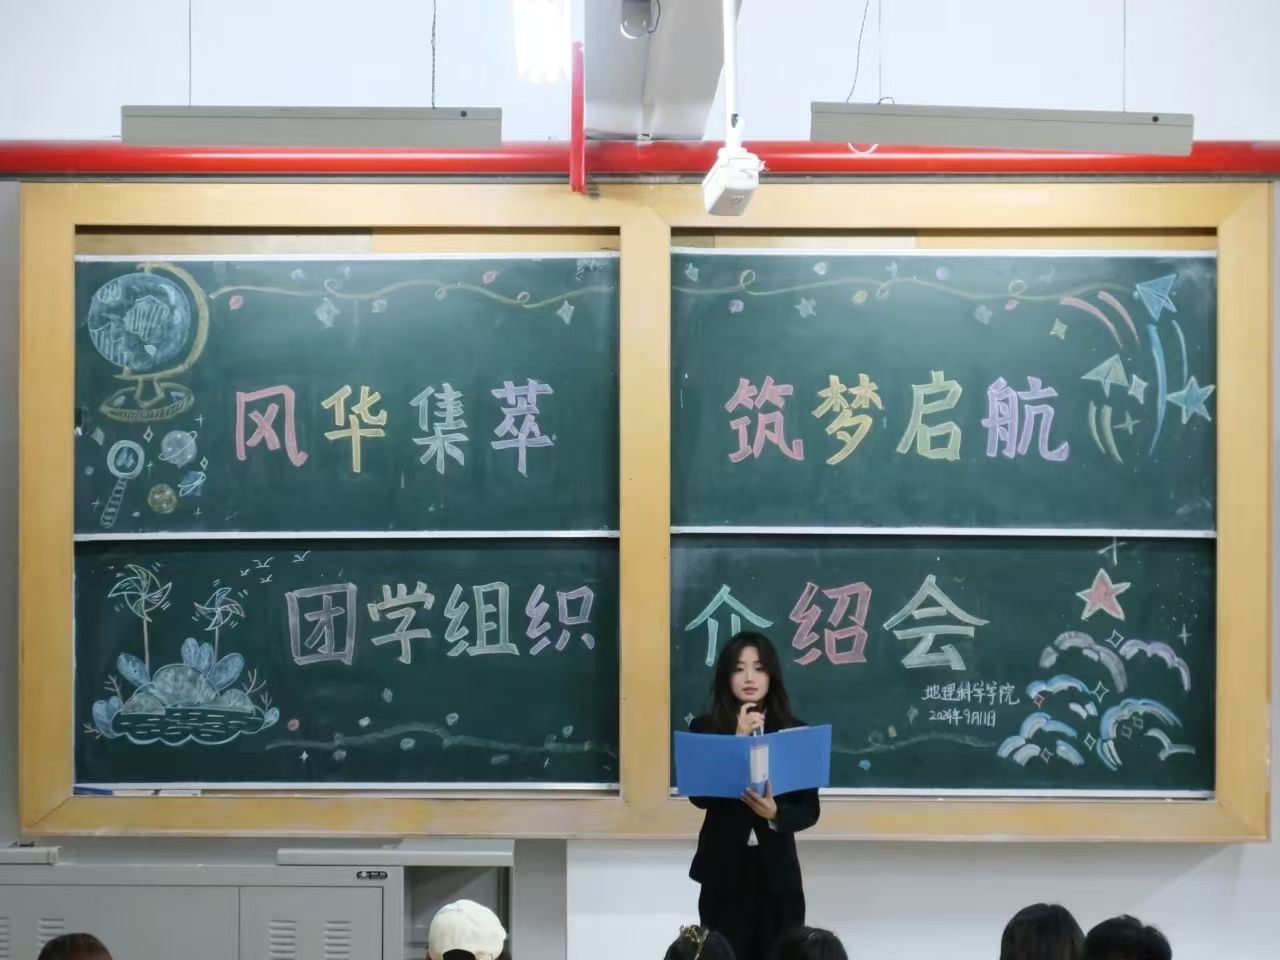 风华集萃
筑梦启航
团学组织
介绍会
地理科学学院
2024年9月11日